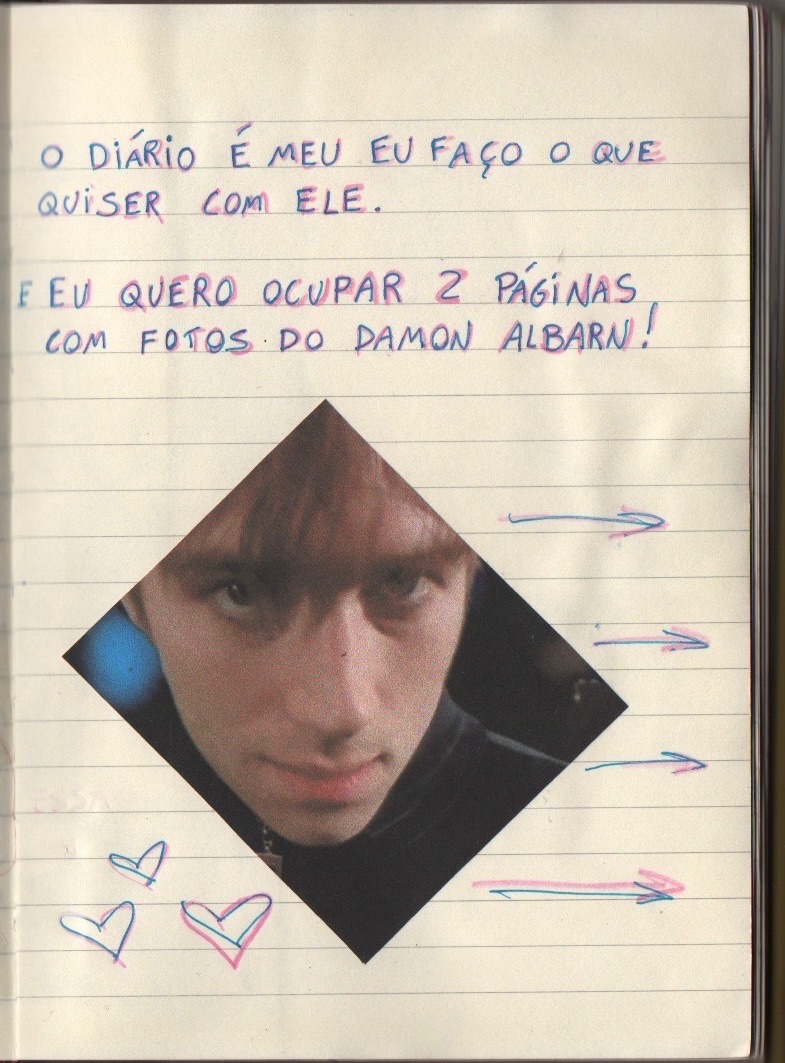 O DIÁRIO É MEU EU FAÇO O QUE
QUISER COM ELE.
E EU QUERO OCUPAR 2 PÁGINAS
COM FOTOS DO DAMON ALBARN!